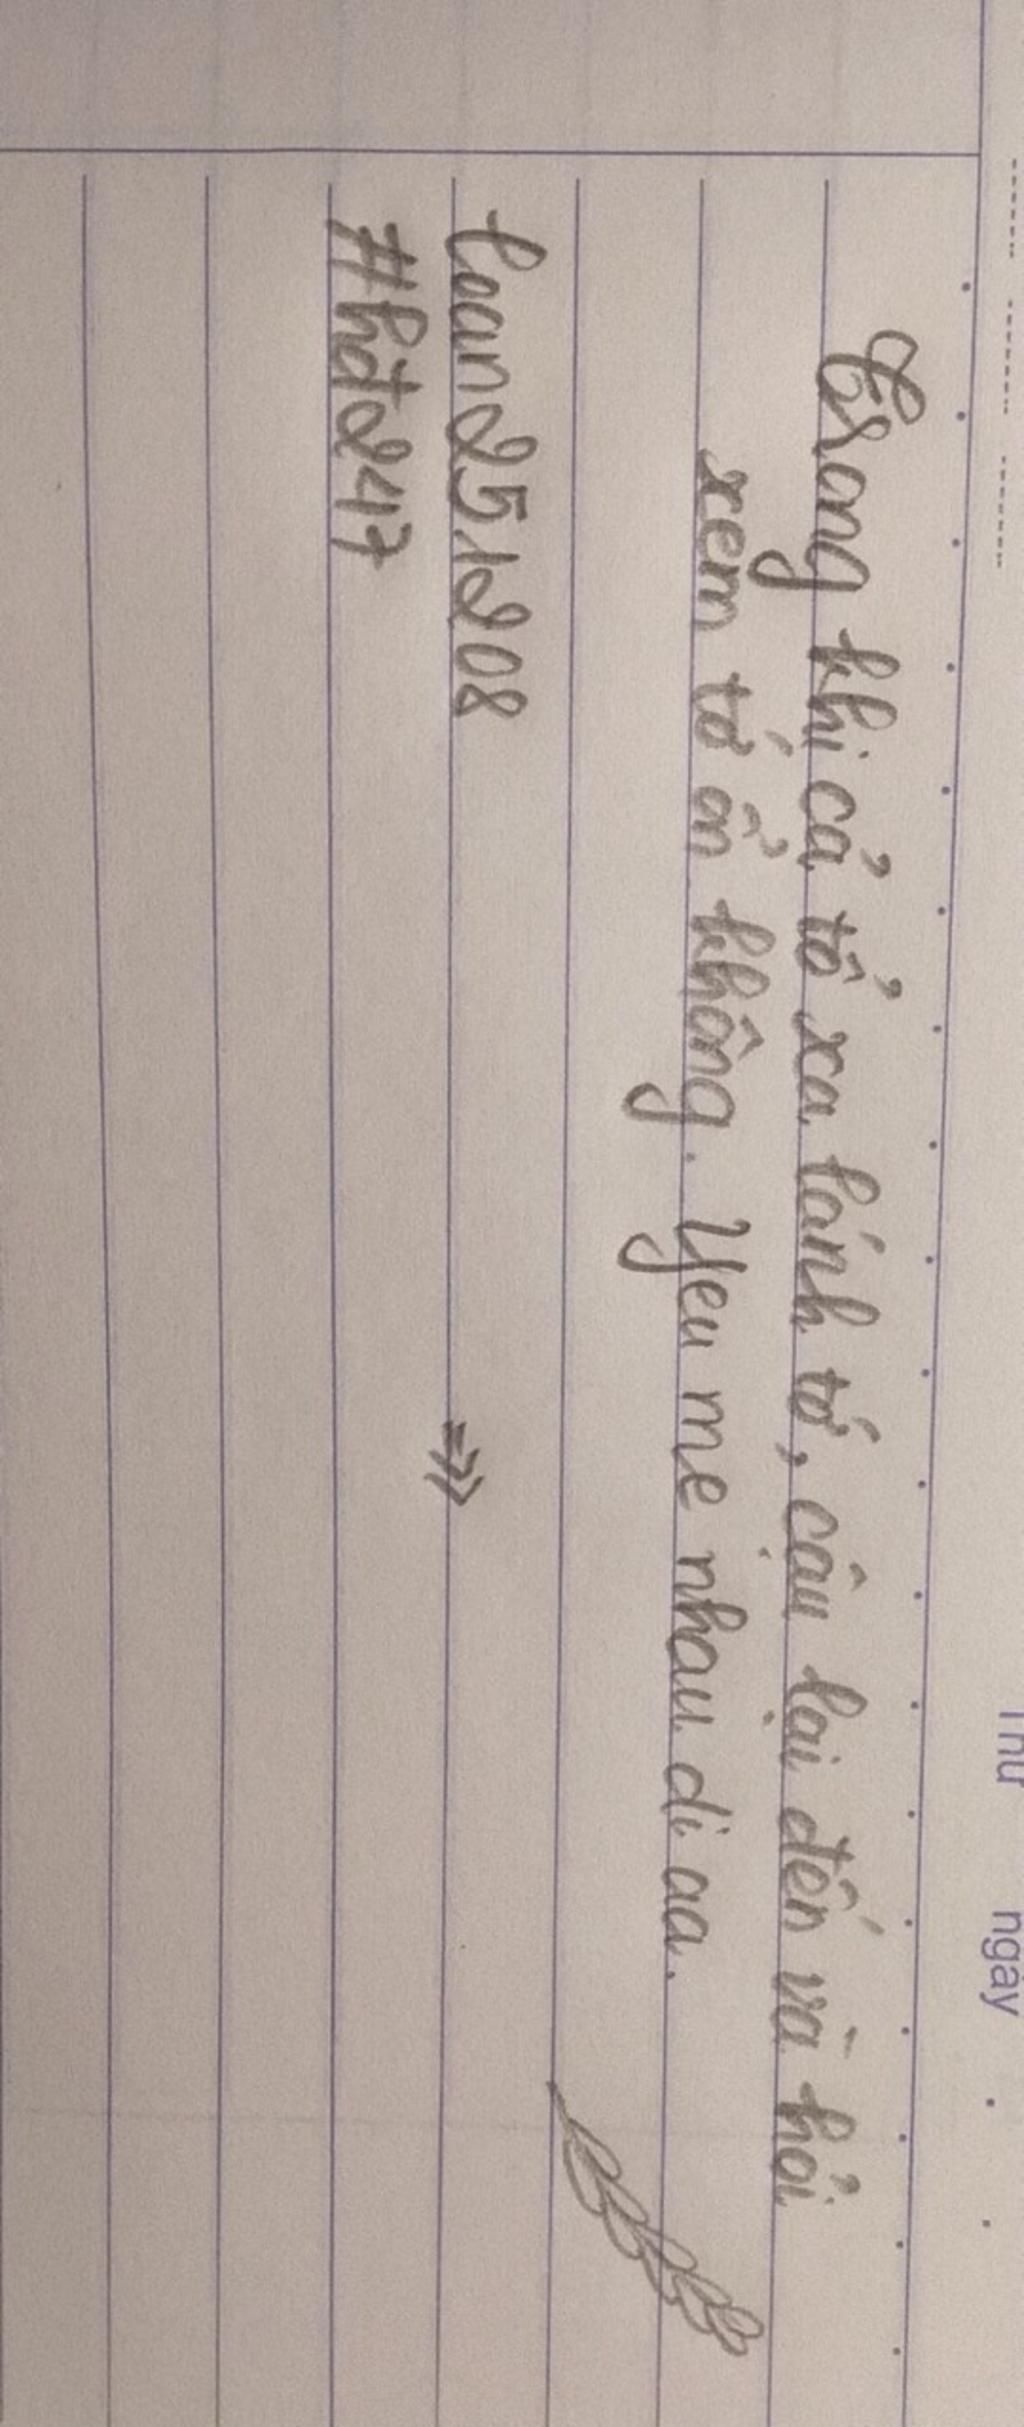 Thứ ngày
Trong khi cả tổ xa lánh tớ, cậu lại đến và hỏi
xem tớ ổn không. Yeu me nhau di aa.
loan251208
#hdt247